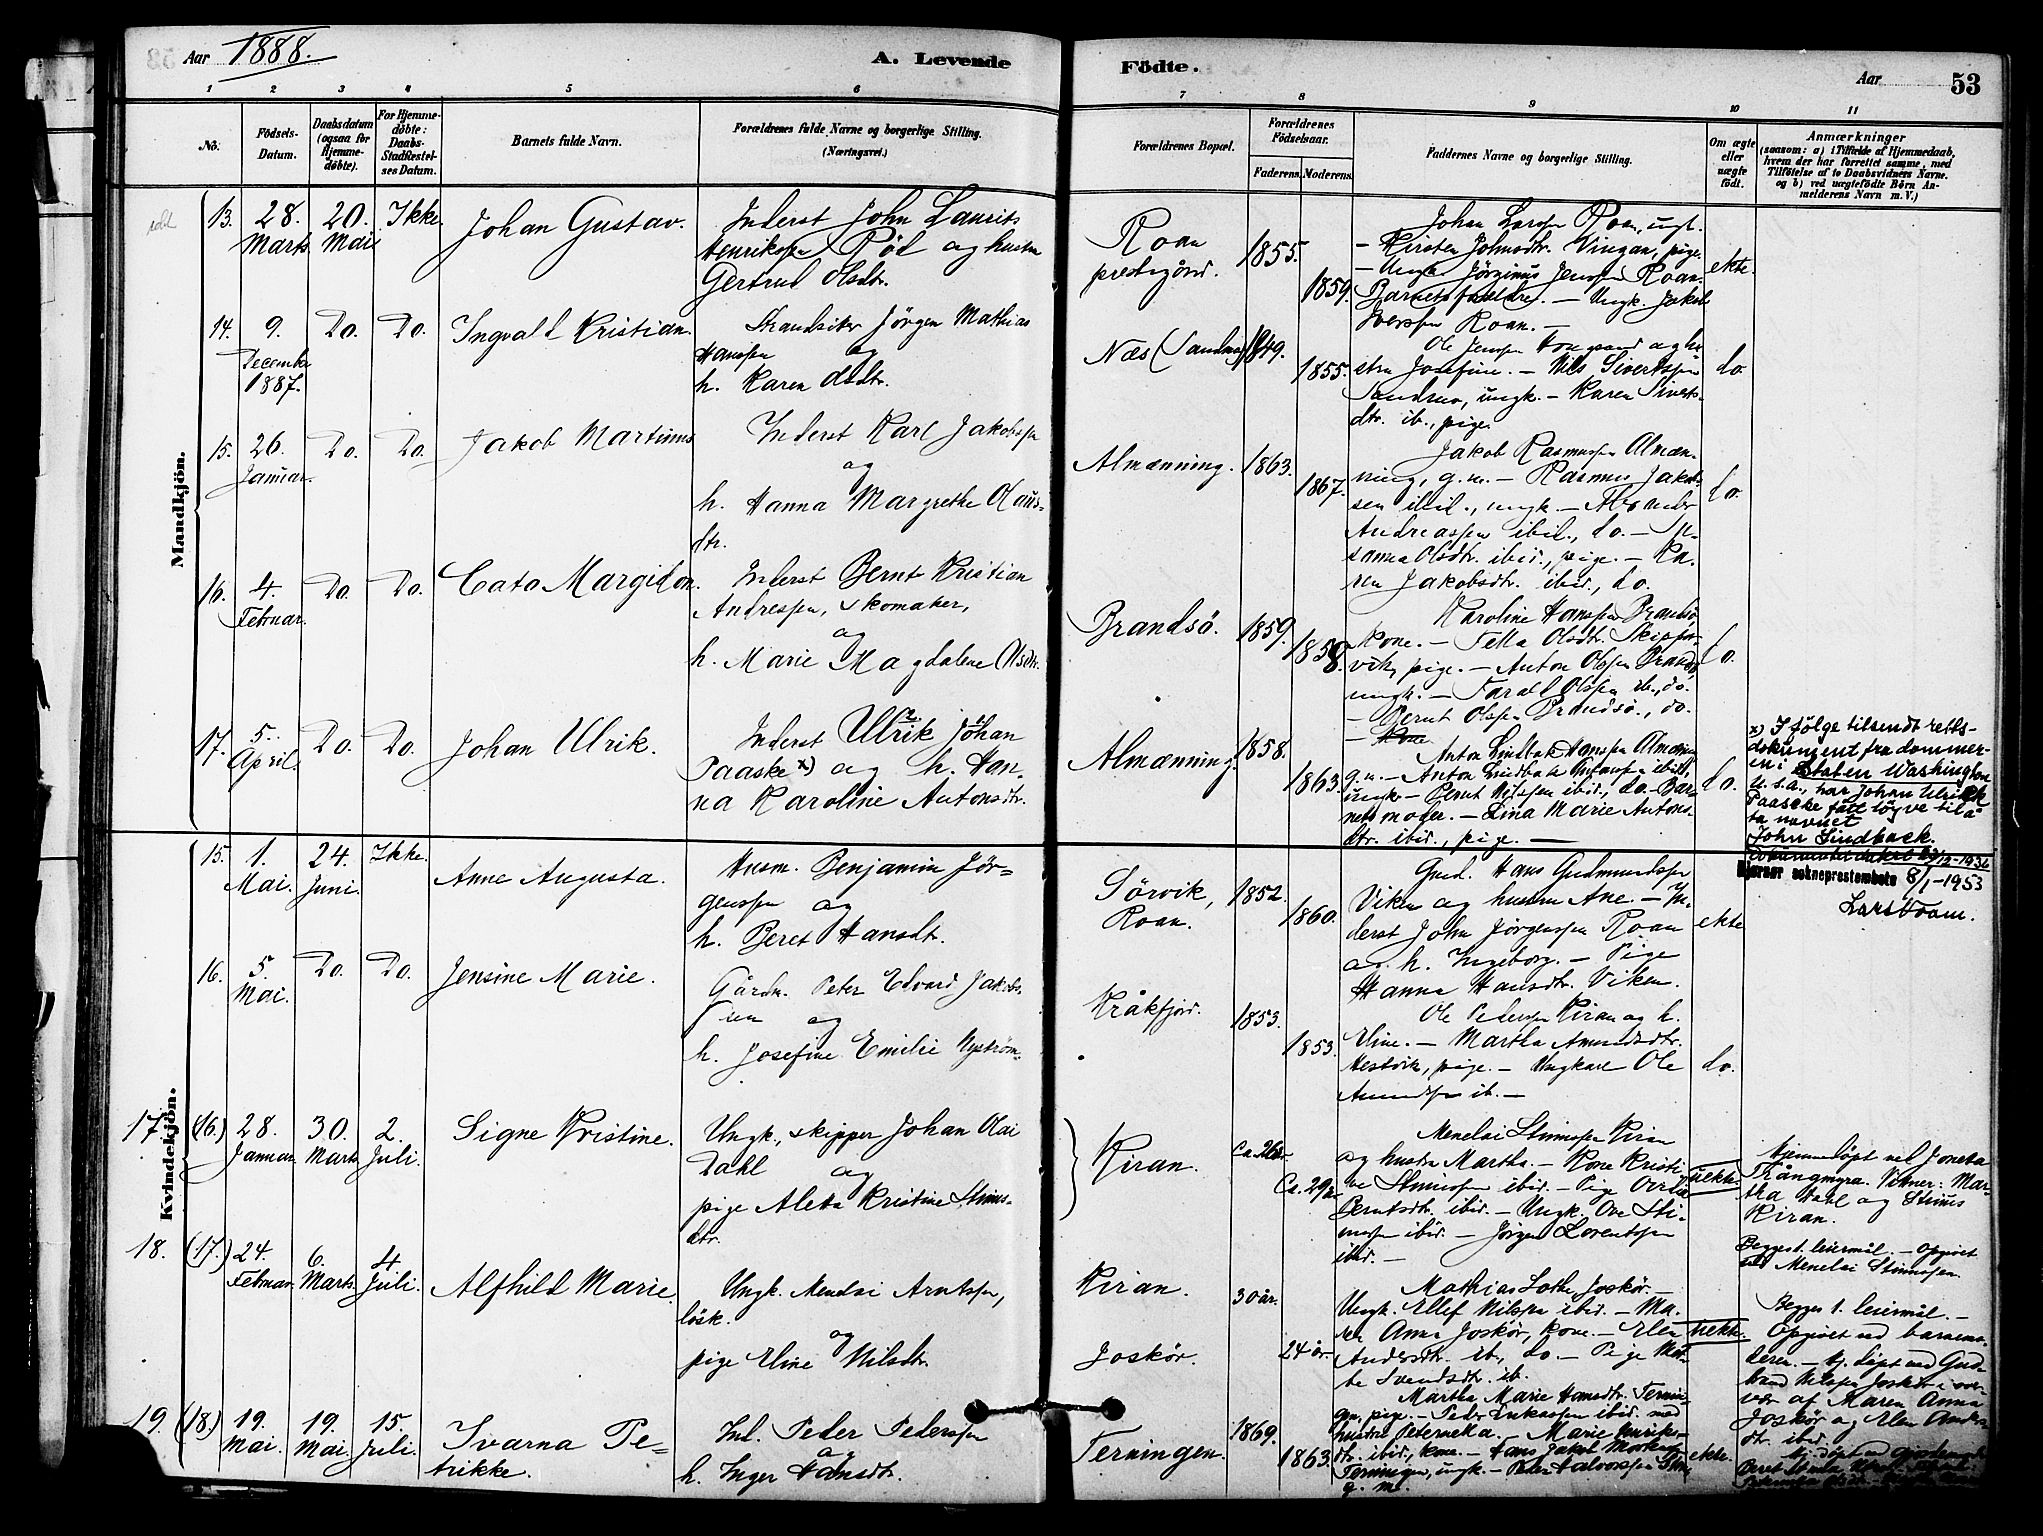 Aar 1888. A. Levende Födte. Aar 53
1 2 3 4 5 6 7 8 9 10 11
No. Födsels-Datum. Daabsdatum (ogsaa for Hjemme-döbte). For Hjemme-döbte: Daabs-Stadfæstel-ses Datum. Barnets fulde Navn. Forældrenes fulde Navne og borgerlige Stilling. (Næringsvei.) Forældrenes Bopæl. Forældrenes Födselsaar. Faderens. Moderens. Faddernes Navne og borgerlige Stilling. Om ægte eller uægte födt. Anmærkninger (saasom: a) i Tilfælde af Hjemmedaab, hvem der har forrettet samme, med Tilföielse af to Daabsvidners Navne. og b) ved uægtefödte Börn An-melderens Navn m.V.)
Mandkjön.
13. 28. Marts. 20. Mai. Ikke. Johan Gustav.
Inderst John Laurits
Henriksen Röd og hustru
Gertrud Olsdtr.
Roan
prestegård.
1855.
1859.
Johan Larssen Roan, ungk.
– Kirsten Johnsdtr. Vingan, pige.
– Ungk. Jörginus Jenssen Roan.
Barnets forældre. – Ungk. Jakob
Iverssen Roan. –
ekte.
14. 9. December 1887. Do. Do. Ingvald Kristian.
Strandsitter Jörgen Mathias
Hanssen og
h. Karen Olsdtr.
Næs (Sandnes)
1849.
1855.
Ole Jenssen
Josefine. – Nils Sivertssen
Sandnes, ungk. – Karen Siverts-
dtr. ib., pige.
do.
15. 26. Januar. Do. Do. Jakob Martinus
Inderst Karl Jakobssen
og
h. Hanna Margrethe Olaus-
dtr.
Almænning.
1863.
1867.
Jakob Rasmussen Almæn-
ning, g.m. – Rasmus Jakob-
sen ibid., ungk. –
Andreassen ibid., do. –
Olsdtr. ibid., pige. – Ka-
ren Jakobsdtr. ibid., do.
do.
16. 4. Februar. Do. Do. Cato Margidon.
Inderst Bernt Kristian
Andressen, skomaker,
og
h. Marie Magdalene Olsdtr.
Brandsö.
1859.
1858.
Karoline Hanssen Brandsö
kone. – Olsdtr. Skjer-
vik, pige. – Anton Olssen Brandsö,
ungk. – Olssen ib., do.
– Bernt Olssen Brandsö, do.
– Kone
do.
17. 5. April. Do. Do. Johan Ulrik.
Inderst Ulrik Johan
Paaske x) og h. Han-
na Karoline Antonsdtr.
Almænning.
1858.
1863.
Anton Lindbak Hanssen Almænn.
g.m. – Anton Lindbak Antonssen ibid.,
ungk. – Bernt Nilssen ibid., do. – Bar-
nets moder. – Lina Marie Antons-
dtr. ibid., pige. –
do.
x) Ifølge tilsendt retts-
dokument fra dommer-
en i Staten Washington
U.S.A., har Johan Ulrick
Paaske fått løyve til å
ta navnet
John Lindback.
Dokumentet datert 23/12-1936
Bjørnør sokneprestembete 8/1-1953
Kvindekjön.
15. 1. Mai. 24. Juni. Ikke. Anne Augusta.
Husm. Benjamin Jör-
genssen og
h. Beret Hansdtr.
Sörvik,
Roan.
1852.
1860.
Grd. Hans Gudmundssen
Viken og hustru Ane. – In-
derst John Jörgenssen Roan
og h. Ingeborg. – Pige
Hanna Hansdtr. Viken.
ekte
16. 5. Mai. Do. Do. Jensine Marie.
Gårdm. Peter Edvard Jakobs-
sen og
h. Josefine Emilie Nyström.
Kråkfjord.
1853.
1853.
Ole Pederssen Kiran og h.
Eline. – Martha Amundsdtr.
Hestvik, pige. – Ungkarl Ole
Amundssen ib. –
do.
17. (16.) 28. Januar. 30. Marts. 2. Juli. Signe Kristine.
Ungk., skipper Johan Olai
Dahl og
pige Aleta Kristine Stinus-
dtr.
Kiran.
Ca. 26 år.
Ca. 29 år
Menelai Stinussen Kiran
og hustru Martha. – Kone Kristi-
ne Stinussen ibid. – Pige
Berntsdtr. ibid. – Ungk. Ove Sti-
nussen ibid. – Jörgen Lorentssen
ibid. –
uekte.
Hjemmedöpt ved
Trångmyra. Vitner: Mar-
tha Dahl og Stinus
Kiran.
Begges 1. leiermål. – Opgivet
ved Menelai Stinussen.
18. (17.) 24. Februar. 6. Marts. 4. Juli. Alfhild Marie.
Ungk. Menelai Arntssen,
lösk.
og
pige Eline Nilsdtr.
Kiran.
Joskör.
30 år.
24 år.
Mathias Joskör. –
Ungk. Ellef Nilssen ibid. – Ma-
ren Anna Joskör, kone. – Elen
Andersdtr. ib., do. – Pige
Svendsdtr. ib.
uekte.
Begges 1. leiermål. –
Opgivet ved barnemo-
deren. – Hj. döpt ved Gud-
brand Nilssen Joskör i over-
vær af Maren Anna
Joskör og Elen Anders-
dtr. ibid.
19. (18.) 19. Mai. 19. Mai. 15. Juli. Ivarna Pe-
trikke.
Ind. Peder Pederssen
og
h. Inger Hansdtr.
Terningen.
1869.
1863.
Martha Marie Hansdtr. Ternin-
gen, pige. – Peder Lukassen ibid. med
hustru Peternella. – Marie Henriks-
dtr. ibid., kone. – Hans Jakob
Terningen, ungk. – Peter Halvorssen
g. m.
ekte.